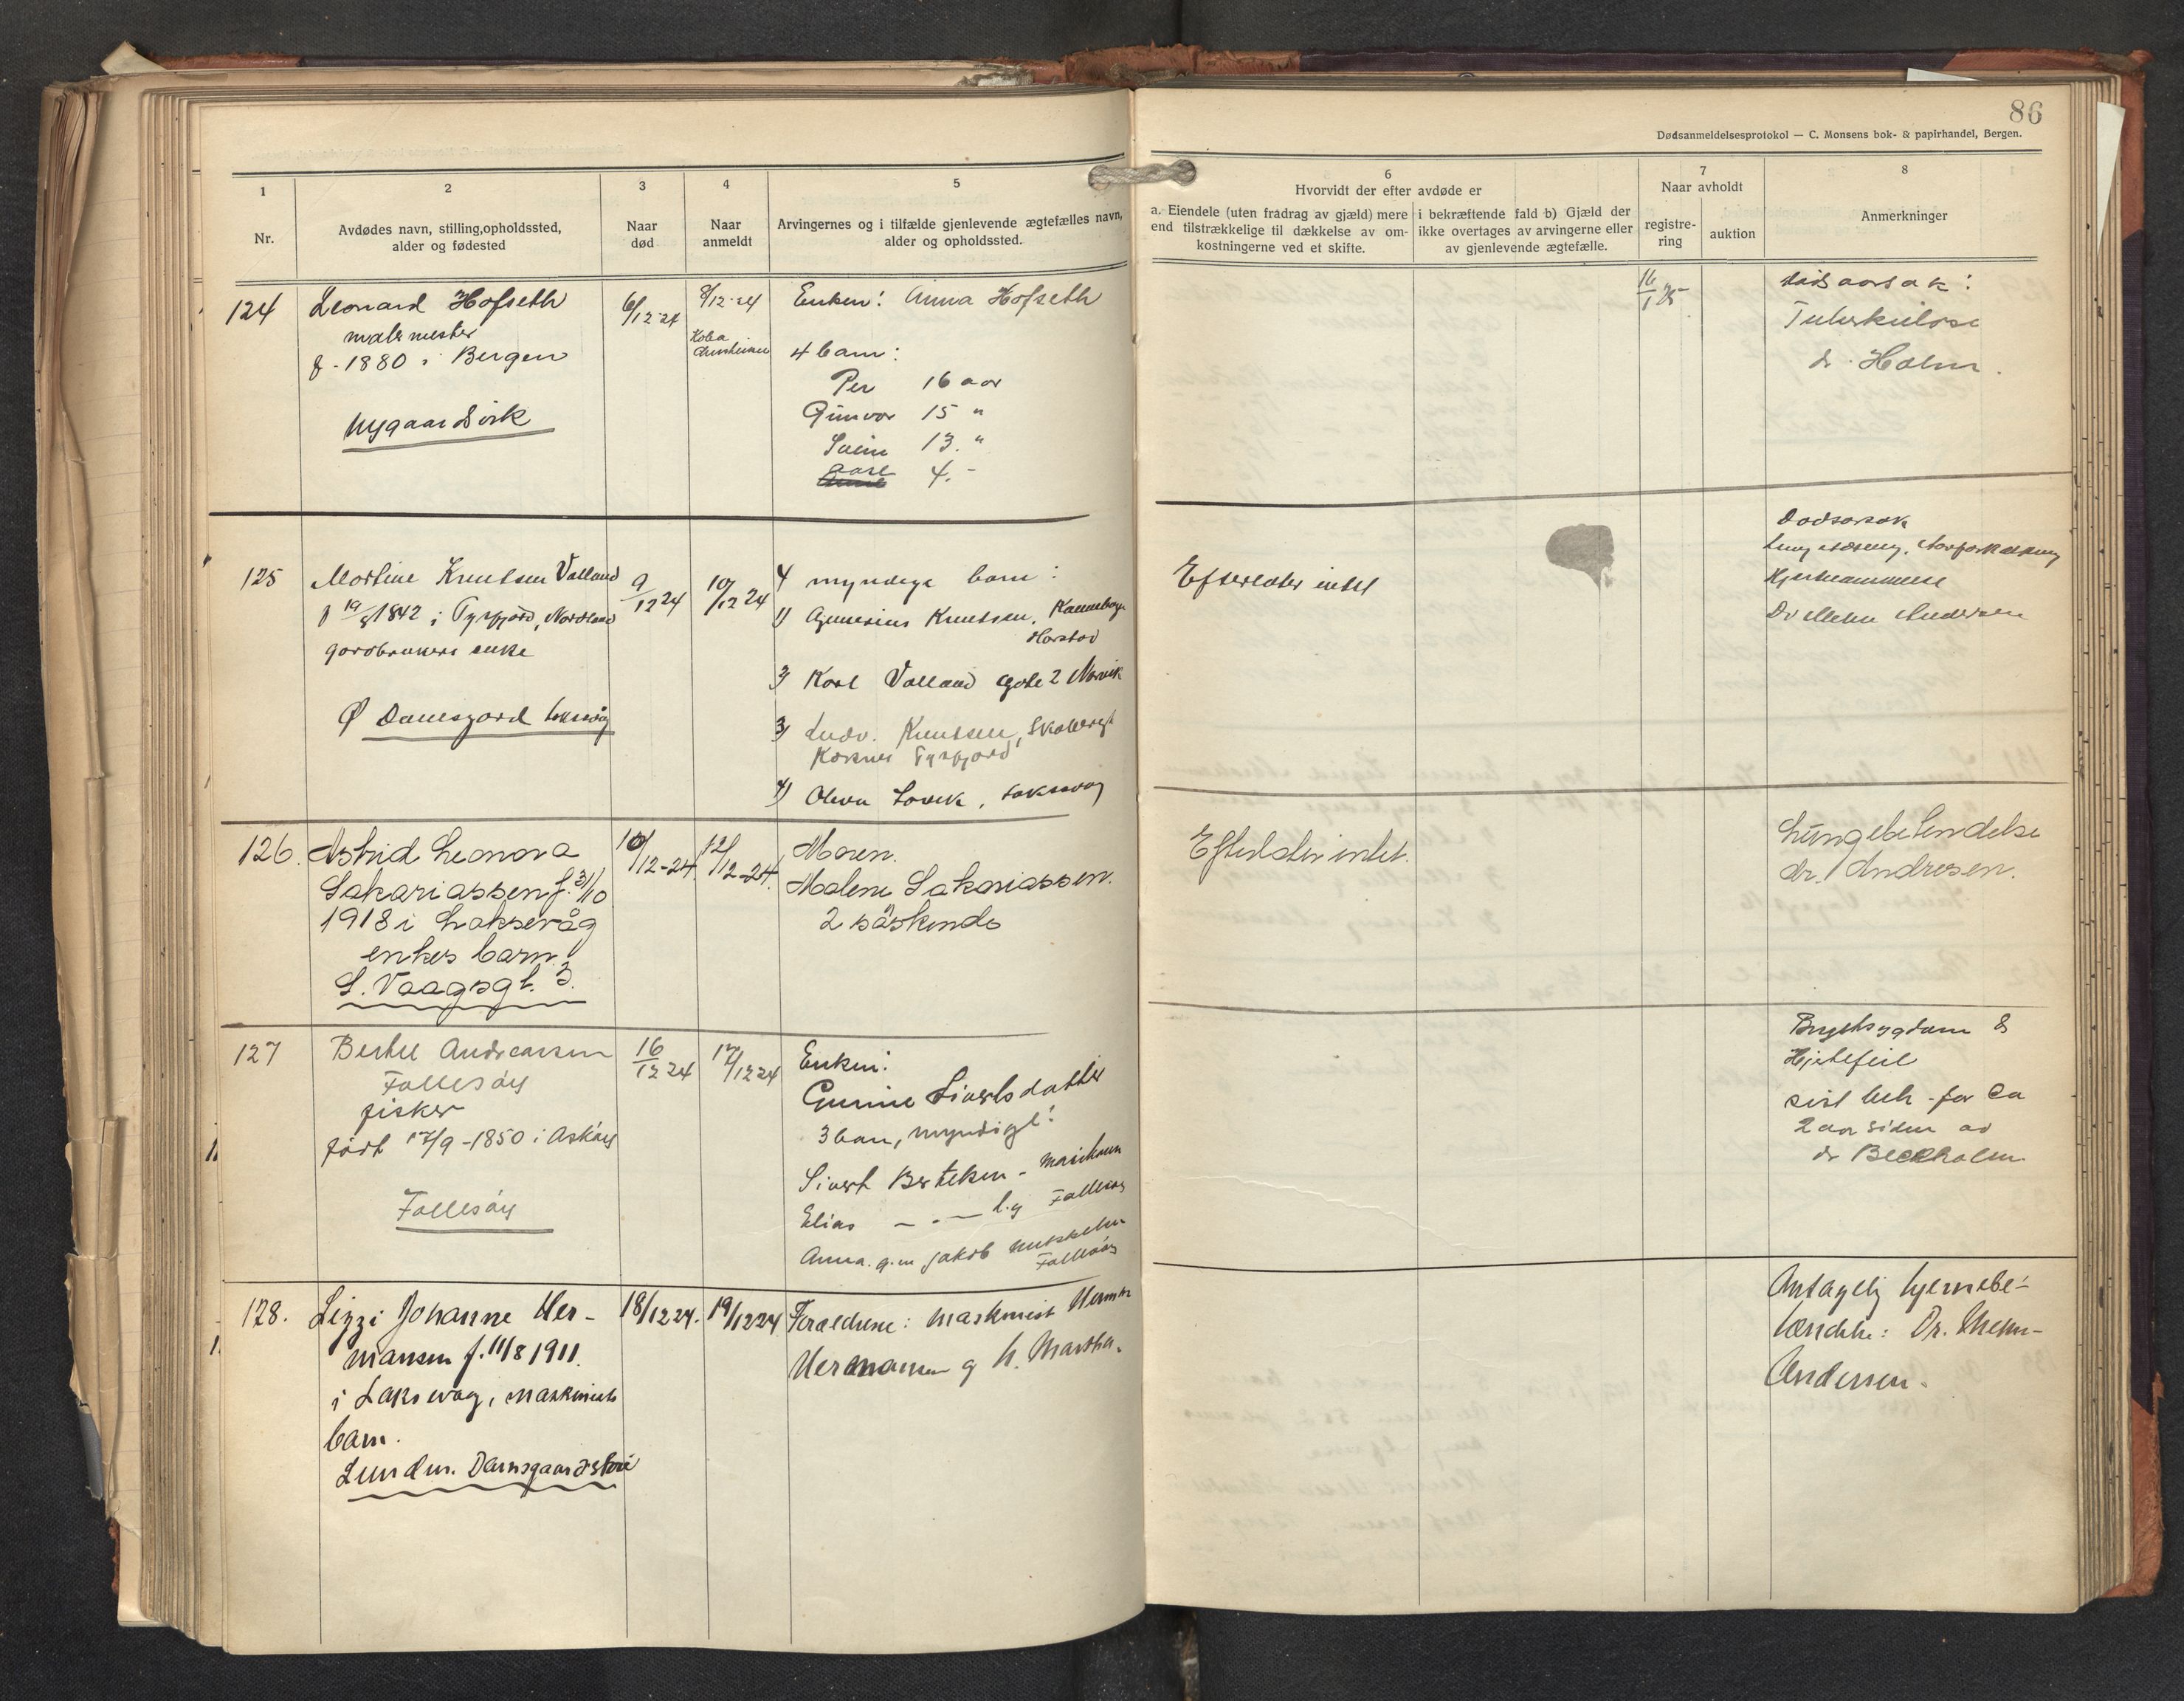 86
Dødsanmeldelsesprotokol — C. Monsens bok- & papirhandel, Bergen.
1
Nr.
2
Avdødes navn, stilling,opholdssted,
alder og fødested
3
Naar
død
4
Naar
anmeldt
5
Arvingernes og i tilfælde gjenlevende ægtefælles navn,
alder og opholdssted.
6
Hvorvidt der efter avdøde er
a. Eiendele (uten fradrag av gjæld) mere
end tilstrækkelige til dækkelse av om-
kostningerne ved et skifte.
i bekræftende fald b) Gjæld der
ikke overtages av arvingerne eller
av gjenlevende ægtefælle.
7
Naar avholdt
registre-
ring
auktion
8
Anmerkninger
124
Leonard Hofseth
malermester
f. 1880 i Bergen
Nygaardsvik
6/12-24
8/12-24
Enken: Anna Hofseth
4 barn:
Per 16 aar
Gunvor 15 "
Svein 13. "
Aase 4. -
16/1 25
dødsaarsak:
Tuberkulose
dr. Holm.
125
Martine Knutsen Valland
f 19/8 1842 i Tysfjord, Nordland
gardbrukers enke
Ø Damsgard Laksevåg
9/12 24
10/12 24
4 myndige barn:
1) Knutsen, Kannebogn
Harstad
2) Karl Valland gate 2 Narvik
3) Ludv. Knutsen,
Korsnes Tysfjord
4) Lovik, Laksevåg
Efterlater intet
Dødsorsak
Hjertelammelse
Dr Mehn Andersen
126.
Astrid Leonora
Sakariassen f. 3/10
1918 i Laksevåg
enkes barn.
S. Vaagsgt. 3.
10/12-24.
12/12-24.
Moren.
Malene Sakariassen.
2 søskende
Efterlater intet.
Lungebetendelse
dr. Andresen.
127
Bertel Andreassen
Follesøy
fisker
født 17/9-1850 i Askøy
Follesøy
16/12 24
17/12 24
Enken:
Gurine Sivertsdatter
3 barn, myndige:
Sivert Bertelsen - Marikoven
Elias — " — l.g Follesøy
Anna. g.m Jakob Mikkelsen
Follesøy
Brystsygdom &
Hjertefeil
sist beh. for ca
2 aar siden av
dr Beckholm
128.
Lizzi Johanne Her-
mansen f. 11/8 1911.
i Laksevaag, maskinists
barn.
Lunden. Damsgaardsveie
18/12 24.
19/12 24
Forældrene: maskinist Herman
Hermansen og h. Martha.
Antagelig hjernebe-
tændelse: Dr. Mehn-
Andersen.